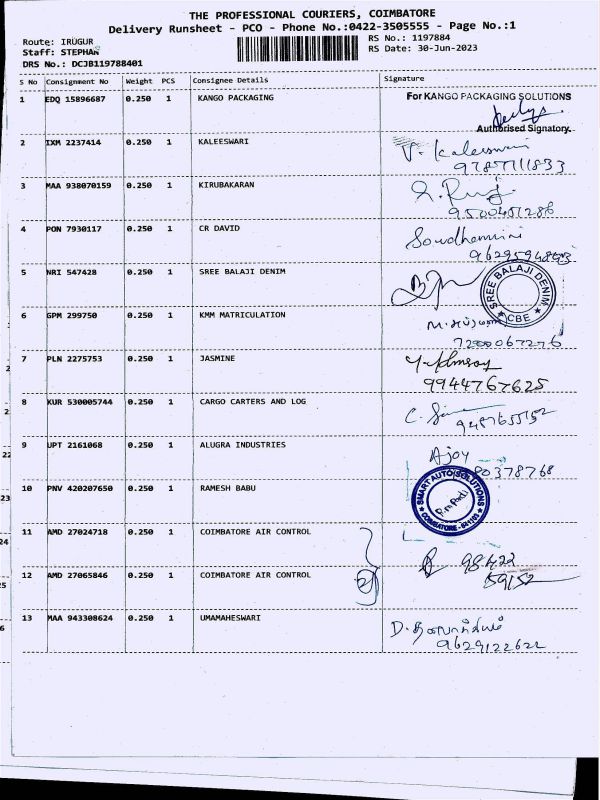 THE PROFESSIONAL COURIERS, COIMBATORE
Delivery Runsheet - PCO - Phone No.:0422-3505555 - Page No.:1
Route: IRUGUR
RS No.: 1197884
Staff: STEPHAN
RS Date: 30-Jun-2023
DRS No.: DCJB119788401
S No Consignment No Weight PCS Consignee Details Signature
1 EDQ 15896687 0.250 1 KANGO PACKAGING For KANGO PACKAGING SOLUTIONS
Authorised Signatory.
2 IXM 2237414 0.250 1 KALEESWARI V. Kaleeswari
9787111833
3 MAA 938070159 0.250 1 KIRUBAKARAN
9500451286
4 PON 7930117 0.250 1 CR DAVID Sowdhamini
5 NRI 547428 0.250 1 SREE BALAJI DENIM
SREE BALAJI DENIM
CBE
6 GPM 299750 0.250 1 KMM MATRICULATION
7200067276
7 PLN 2275753 0.250 1 JASMINE
9944767625
8 KUR 530005744 0.250 1 CARGO CARTERS AND LOG
9487655152
9 UPT 2161068 0.250 1 ALUGRA INDUSTRIES Ajoy
80378768
10 PNV 420207650 0.250 1 RAMESH BABU
SMART AUTO SOLUTIONS
11 AMD 27024718 0.250 1 COIMBATORE AIR CONTROL
98422
59152
12 AMD 27065846 0.250 1 COIMBATORE AIR CONTROL
13 MAA 943308624 0.250 1 UMAMAHESWARI
9629122622